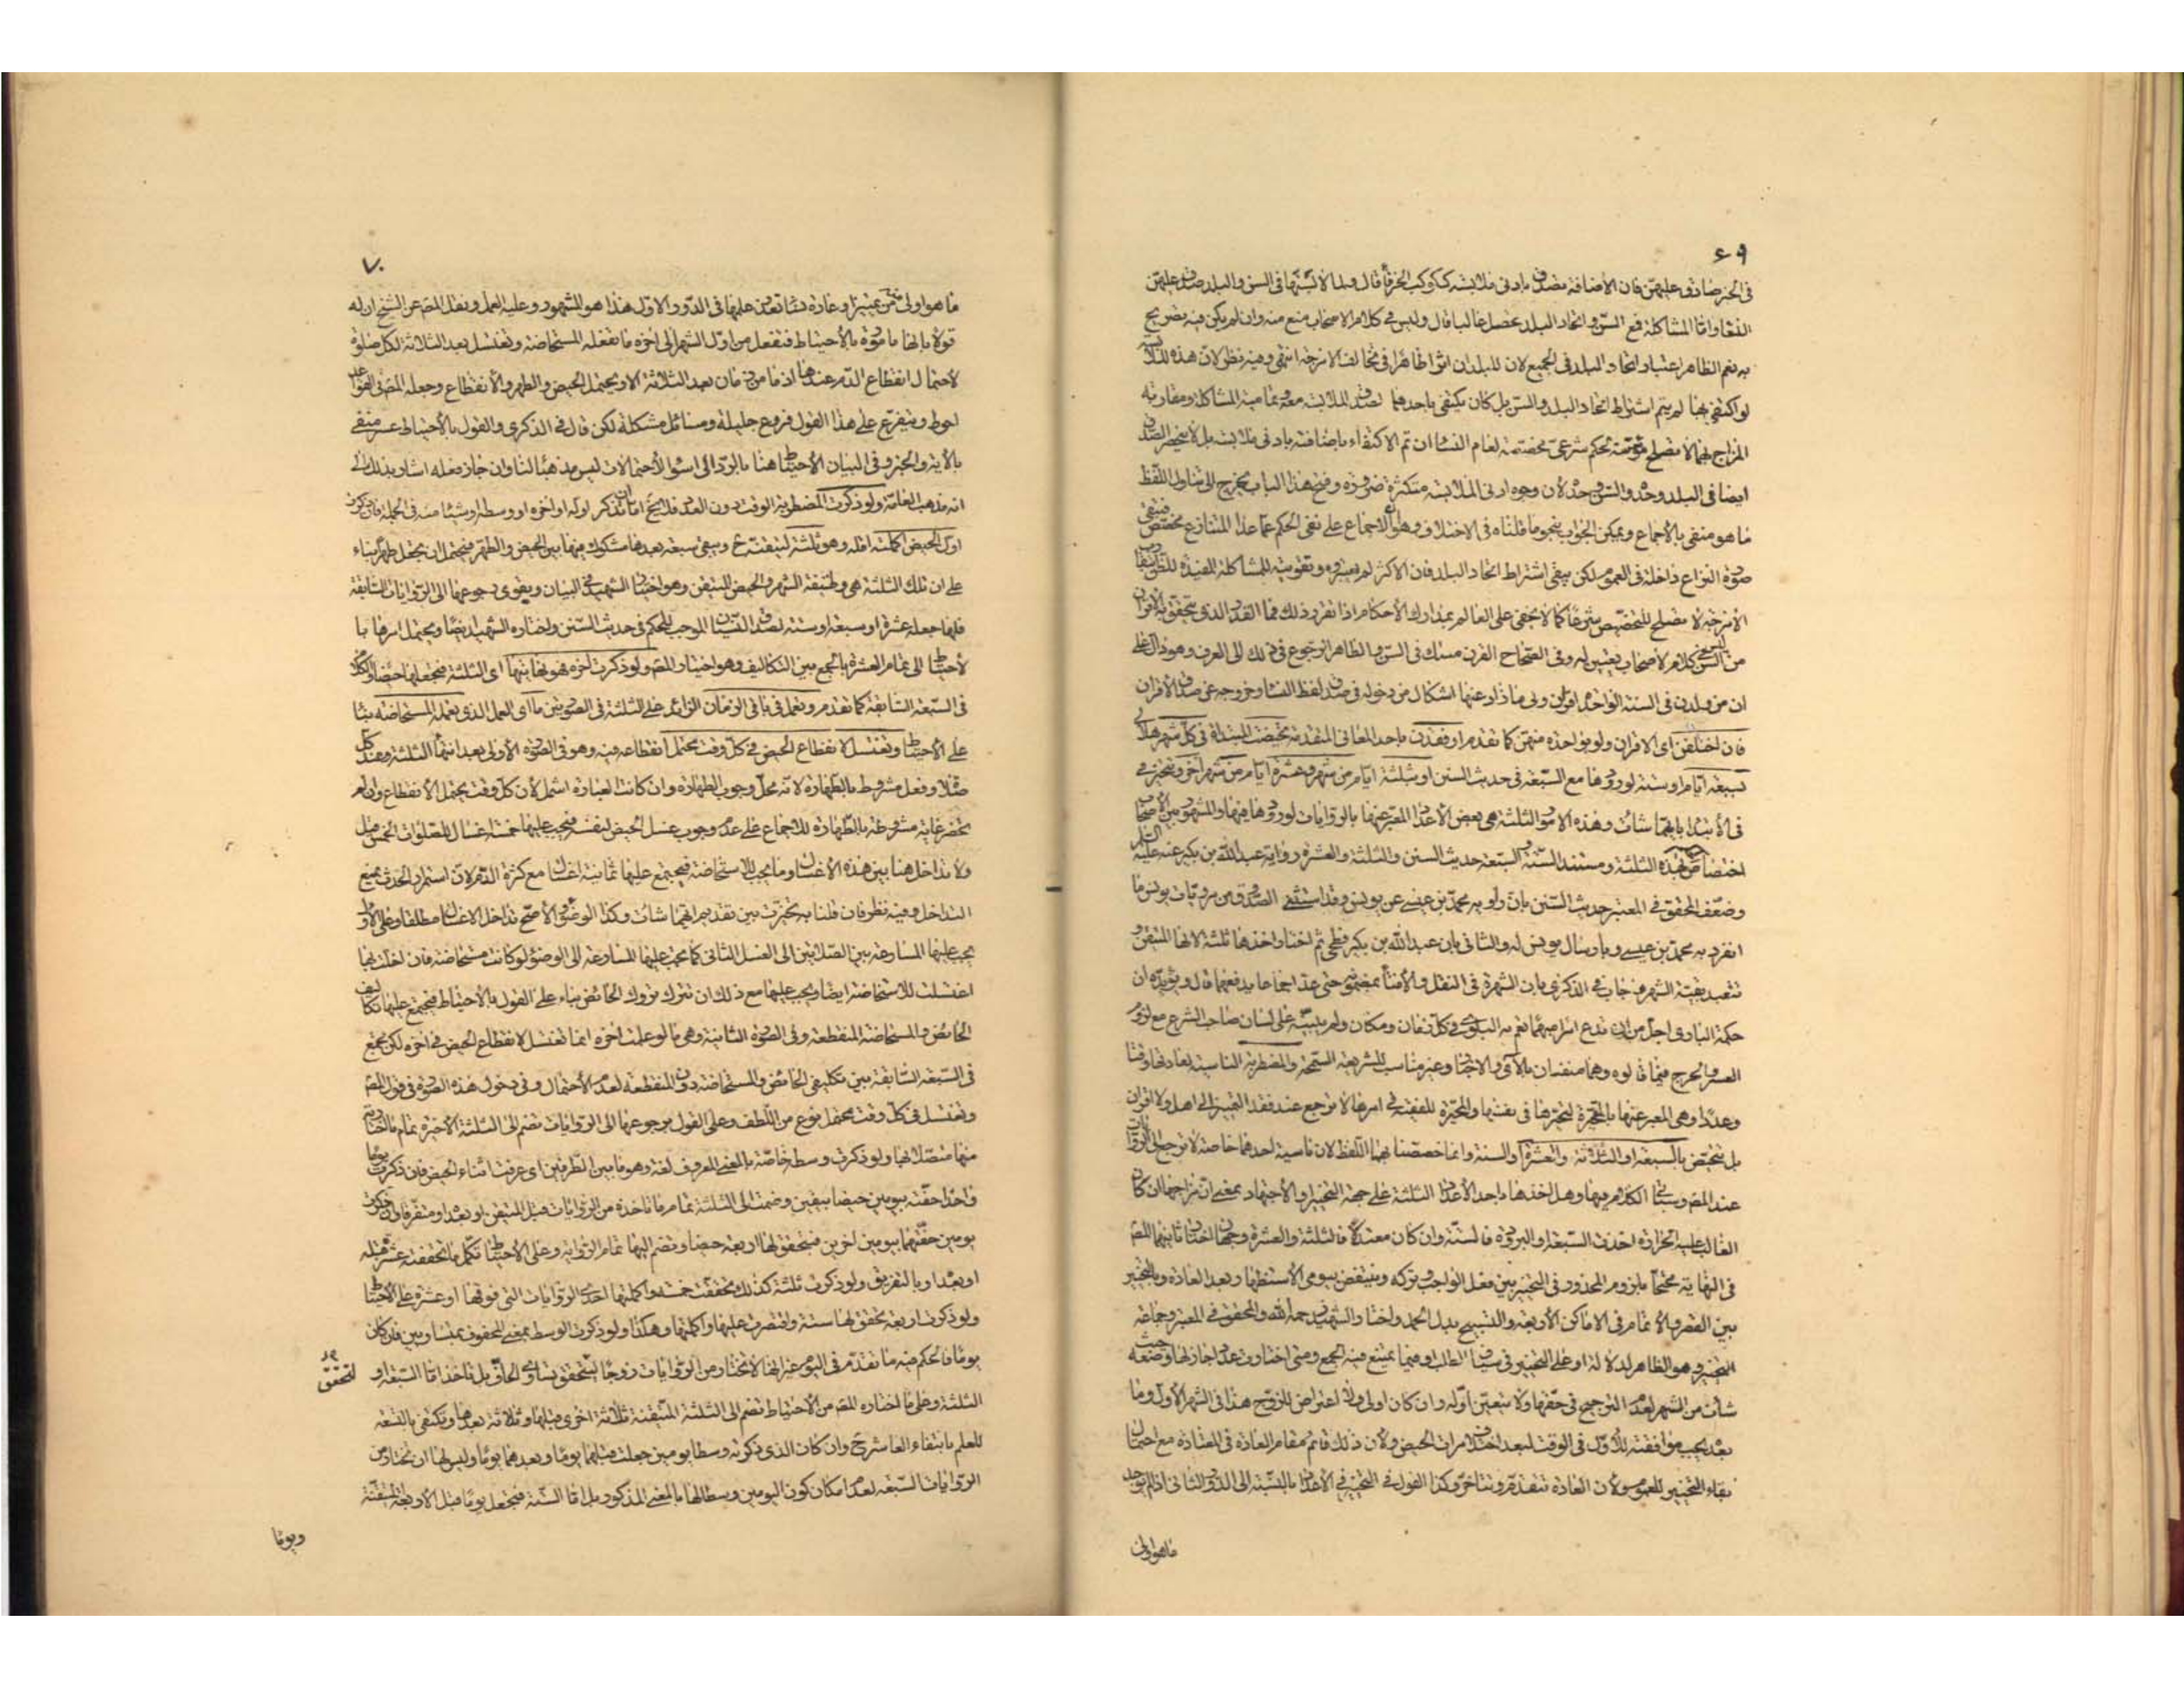 ٦٩
في الخبر صادق عليهن فان الاضافة تصدق بادنى ملابسة ككوكب الخرقاء قال ولما لابسنها في السن والبلد صدق عليهن
النساء واما المشاكلة فمع السن واتحاد البلد تحصل غالبا قال وليس في كلام الاصحاب منع منه وان لم يكن فيه تصريح
به نعم الظاهر اعتبار اتحاد البلد في الجميع لان للبلدان اثرا ظاهرا في تخالف الامزجة انتهى وفيه نظر لان هذه الملابسة
لو اكتفى بها لم يتم اشتراط اتحاد البلد والسن بل كان يكفي باحدهما لصدق الملابسة معه وما فيه المشاكلة ومقاربة
المزاج لهما لا تصلح مؤسسة لحكم شرعي مخصصة لعام النساء ان تم الاكتفاء باضافته بادنى ملابسة بل لا ينحصر الصدق
ايضا في البلد وحده والسن وحده لان وجوه ادنى الملابسة متكثرة ضرورة وفتح هذا الباب يخرج الى تناول اللفظ
ما هو منفي بالاجماع ويمكن الجواب بنحو ما قلناه في الاختلاف وهو ان الاجماع على نفي الحكم عما عدا المتنازع مخصص فتبقى
صورة النزاع داخلة في العموم لكن يبقى اشتراط اتحاد البلد فان الاكثر لم يعتبروه وتقويته للمشاكلة المفيدة للظن بتقارب
الامزجة لا تصلح للتخصيص شرعا كما لا يخفى على العالم بمدارك الاحكام اذا تقرر ذلك فما القدر الذي يتحقق به الاقران
من السن ليس في كلام الاصحاب تعيين له وفي الصحاح القرن مثلك في السن والظاهر الرجوع في ذلك الى العرف وهو دال على
ان من ولدن في السنة الواحدة اقران وفي ما زاد عنها اشكال من دخوله في صدق لفظ النساء وخروجه عن صدق الاقران
فان اختلفن اى الاقران ولو بواحدة منهن كما تقدم او فقدن باحد المعاني المتقدمة تحيضت المبتدأة في كل شهر هلالي
بسبعة ايام او ستة لورودها مع السبعة في حديث السنن او بثلثة ايام من شهر وعشرة ايام من شهر آخر وتتخير في
في الابتداء بايهما شاءت وهذه الامور الثلثة هي بعض الاعداد المعبر عنها بالروايات لورودها فيها والمشهور بين الاصحاب
اختصاص هذه الثلثة ومستند الستة والسبعة حديث السنن والثلثة والعشرة رواية عبد الله بن بكير عنه عليه السلام
وضعف المحقق في المعتبر حديث السنن بان راويه محمد بن عيسى عن يونس وقد استثنى الصدوق من مرويات يونس ما
انفرد به محمد بن عيسى وبارسال يونس له والثاني بان عبد الله بن بكير فطحي ثم اختار اخذها ثلثة لانها المتيقن و
تتعبد بقية الشهر فاجاب في الذكرى بان الشهرة في النقل والافتاء بمضمونه حتى عد اجماعا يدفعهما قال ويؤيده ان
حكمة الباري اجل من ان تدع امرا مبهما تعم به البلوى في كل زمان ومكان ولم يبينه على لسان صاحب الشرع مع لزوم
العسر والحرج فيما قالوه وهما منفيان بالآي والاخبار وغير مناسب للشريعة السمحة والمضطربة الناسية لعادتها وقتا
وعددا وهي المعبر عنها بالمتحيرة لتحيرها في نفسها والمحيرة للفقيه في امرها لا ترجع عند فقد التمييز الى اهل ولا اقران
بل تتحيض بالسبعة او الثلاثة والعشرة او الستة وانما خصصنا بهذا اللفظ لان ناسية احدهما خاصة لا ترجع الى الروايات
عند المصنف وسيأتي الكلام فيها وهل اخذها باحد الاعداد الثلثة على جهة التخيير او الاجتهاد بمعنى ان مزاجها ان كان
الغالب عليه الحرارة اخذت السبعة او البرودة فالستة وان كان معتدلا فالثلثة والعشرة وجهان اختار ثانيهما المصنف
في النهاية محتجا بلزوم المحذور في التخيير بين فعل الواجب وتركه وينتقض بيومي الاستظهار بعد العادة وبالتخيير
بين القصر والاتمام في الاماكن الاربعة والتسبيح بدل الحمد واختار الشهيد رحمه الله والمحقق في المعتبر وجماعة
التخيير وهو الظاهر لدلالة او على التخيير في سياق الطلب او فيما يمتنع فيه الجمع ومتى اختارت عددا جاز لها وضعه حيث
شاءت من الشهر لعدم الترجيح في حقها ولا يتعين اوله وان كان اولى ولا اعتراض للزوج هذا في الشهر الاول وما
بعده يجب موافقته للاول في الوقت لبعد اختلاف مرات الحيض ولان ذلك قائم مقام العادة في المعتادة مع احتمال
بقاء التخيير للعموم ولان العادة تتقدم وتتأخر وكذا القول في التخيير في الاعداد بالنسبة الى الدور الثاني اذا لم يوجد
ما هو اولى
٧٠
ما هو اولى من تمييز او عادة نساء تعين عليها في الدور الاول هذا هو المشهور وعليه العمل ونقل المصنف عن الشيخ ان له
قولا بانها مامورة بالاحتياط فتفعل من اول الشهر الى آخره ما تفعله المستحاضة وتغتسل بعد الثلاثة لكل صلوة
لاحتمال انقطاع الدم عندها اذ ما من زمان بعد الثلاثة الا ويحتمل الحيض والطهر والانقطاع وجعله المصنف في القواعد
احوط ويتفرع على هذا القول فروع جليلة ومسائل مشكلة لكن قال في الذكرى والقول بالاحتياط عسر منفي
بالآية والخبر وفي البيان الاحتياط هنا بالرد الى اسوأ الاحتمالات ليس مذهبا لنا وان جاز فعله اشار بذلك الى
انه مذهب العامة ولو ذكرت المضطربة الوقت دون العدد فلا يخلو اما ان تذكر اوله او آخره او وسطه او شيئا منه في الجملة فان ذكرت
اول الحيض اكملته اقله وهو ثلثة لتيقنه ح ويبقى سبعة بعدها مشكوك فيها بين الحيض والطهر فيحتمل ان يجعل طهرا بناء
على ان تلك الثلثة هي وظيفة الشهر والحيض المتيقن وهو اختيار الشهيد في البيان ويقوى رجوعها الى الروايات السابقة
فلها جعله عشرة او سبعة او ستة لصدق النسيان الموجب للحكم في حديث السنن واختاره الشهيد ايضا ويحتمل امرها با
لاحتياط الى تمام العشرة بالجمع بين التكاليف وهو اختيار المصنف ولو ذكرت آخره فهو نهايتها اى الثلثة فتجعلها حيضا والكلام
في السبعة السابقة كما تقدم وتعمل في باقي الزمان الزائد على الثلثة في الصورتين ما اى العمل الذي تعمله المستحاضة بناء
على الاحتياط وتغتسل لانقطاع الحيض في كل وقت محتمل انقطاعه فيه وهو في الصورة الاولى بعد انتهاء الثلثة وعند كل
صلاة وفعل مشروط بالطهارة لانه محل وجوب الطهارة وان كانت العبارة اشمل لان كل وقت يحتمل الانقطاع وان لم
تحضر غاية مشروطة بالطهارة للاجماع على عدم وجوب غسل الحيض لنفسه فيجب عليها خمسة اغسال للصلوات الخمس قيل
ولا تداخل هنا بين هذه الاغسال وما يجب للاستحاضة فيجتمع عليها ثمانية اغسال مع كثرة الدم لان استمرار الحدث يمنع
التداخل وفيه نظر فان قلنا به تخيرت بين تقديم ايهما شاءت وكذا الوضوء والاصح تداخل الاغسال مطلقا وعلى الاول
يجب عليها المسارعة بين الصلاتين الى الغسل الثاني كما يجب عليها المسارعة الى الوضوء لو كانت مستحاضة فان اخلت بها
اغتسلت للاستحاضة ايضا ويجب عليها مع ذلك ان تترك تروك الحائض بناء على القول بالاحتياط فيجتمع عليها تكاليف
الحائض والمستحاضة المنقطعة وفي الصورة الثانية وهي ما لو علمت آخره انما تغتسل لانقطاع الحيض في آخره لكن تجمع
في السبعة السابقة بين تكليفي الحائض والمستحاضة دون المنقطعة لعدم الاحتمال وفي دخول هذه الصورة في قول المصنف
وتغتسل في كل وقت محتمل نوع من اللطف وعلى القول برجوعها الى الروايات تضم الى الثلثة الاخيرة تمام ما اختارته
منها متصلا بها ولو ذكرت وسطه خاصة بالمعنى المعروف لغة وهو ما بين الطرفين اى عرفت اثناء الحيض فان ذكرت يوما
واحدا حفته بيومين حيضا بيقين وضمت الى الثلثة تمام ما تاخذه من الروايات قبل المتيقن او بعده او متفرقا وان ذكرت
يومين حفتهما بيومين اخرين فيتحقق لها اربعة حيضا وتضم اليها تمام الرواية وعلى الاحتياط تكمل ما تحققته عشرة قبله
او بعده او بالتفريق ولو ذكرت ثلثة كذلك تحققت خمسة واكملتها احدى الروايات التي فوقها او عشرة على الاحتياط
ولو ذكرت اربعة تحقق لها ستة واقتصرت عليها او اكملتها وهكذا ولو ذكرت الوسط بمعنى المحفوف بمتساويين فان كان
يوما فالحكم فيه ما تقدم في اليوم غير انها لا تختار من الروايات زوجا ليتحقق تساوى الحافين بل تاخذ اما السبعة او
لتحقق
الثلثة وعلى ما اختاره المصنف من الاحتياط تضم الى الثلثة المتيقنة ثلاثة اخرى قبلها وثلاثة بعدها وتكتفي بالتسعة
للعلم بانتفاء العاشر ح وان كان الذي ذكرته وسطا يومين جعلت قبلهما يوما وبعدهما يوما وليس لها ان تختار من
الروايات السبعة لعدم امكان كون اليومين وسطا لها بالمعنى المذكور بل اما الستة فتجعل يوما قبل الاربعة المتيقنة
ويوما